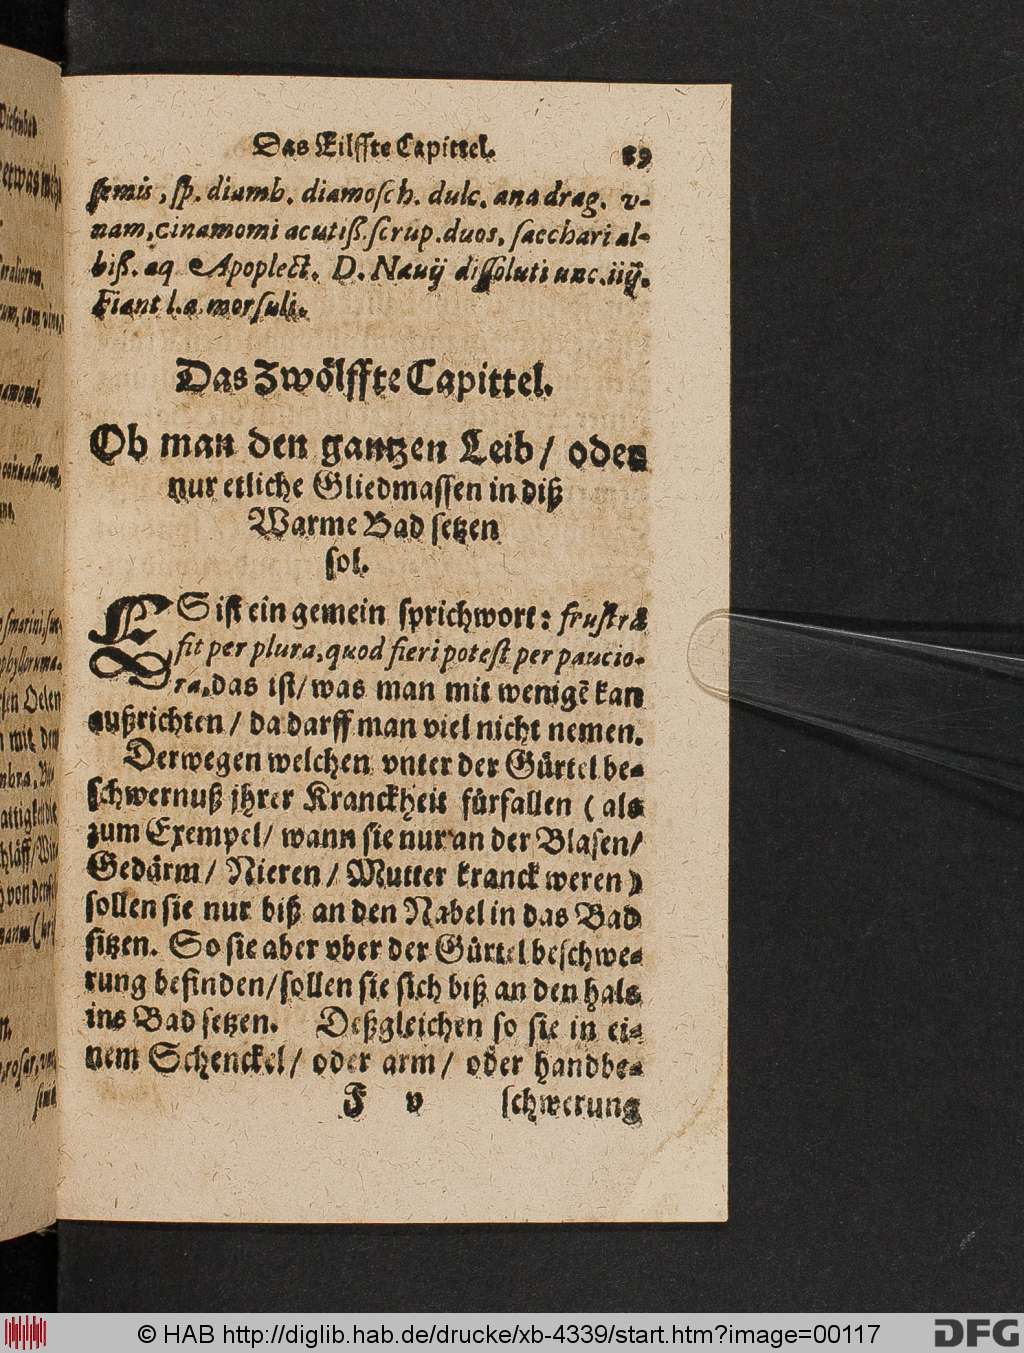 Das Eilffte Capittel. 89
semis, sp. diamb. diamosch. dulc. ana drag. v-
nam, cinamomi acutiß. scrup. duos, sacchari al-
biß. aq Apoplect. D. Nauij dissoluti unc. iiij.
Fiant l. a. morsuli.
Das Zwölffte Capittel.
Ob man den gantzen Leib / oder
nur etliche Gliedmassen in diß
Warme Bad setzen
sol.
ES ist ein gemein sprichwort: frustra
fit per plura, quod fieri potest per paucio-
ra, das ist / was man mit wenigẽ kan
außrichten / da darff man viel nicht nemen.
Derwegen welchen vnter der Gürtel be-
schwernuß jhrer Kranckheit fürfallen (als
zum Exempel / wann sie nur an der Blasen /
Gedärm / Nieren / Mutter kranck weren)
sollen sie nur biß an den Nabel in das Bad
sitzen. So sie aber vber der Gürtel beschwe-
rung befinden / sollen sie sich biß an den hals
ins Bad setzen. Deßgleichen so sie in ei-
nem Schenckel / oder arm / oder handbe-
F v schwerung
© HAB http://diglib.hab.de/drucke/xb-4339/start.htm?image=00117
DFG